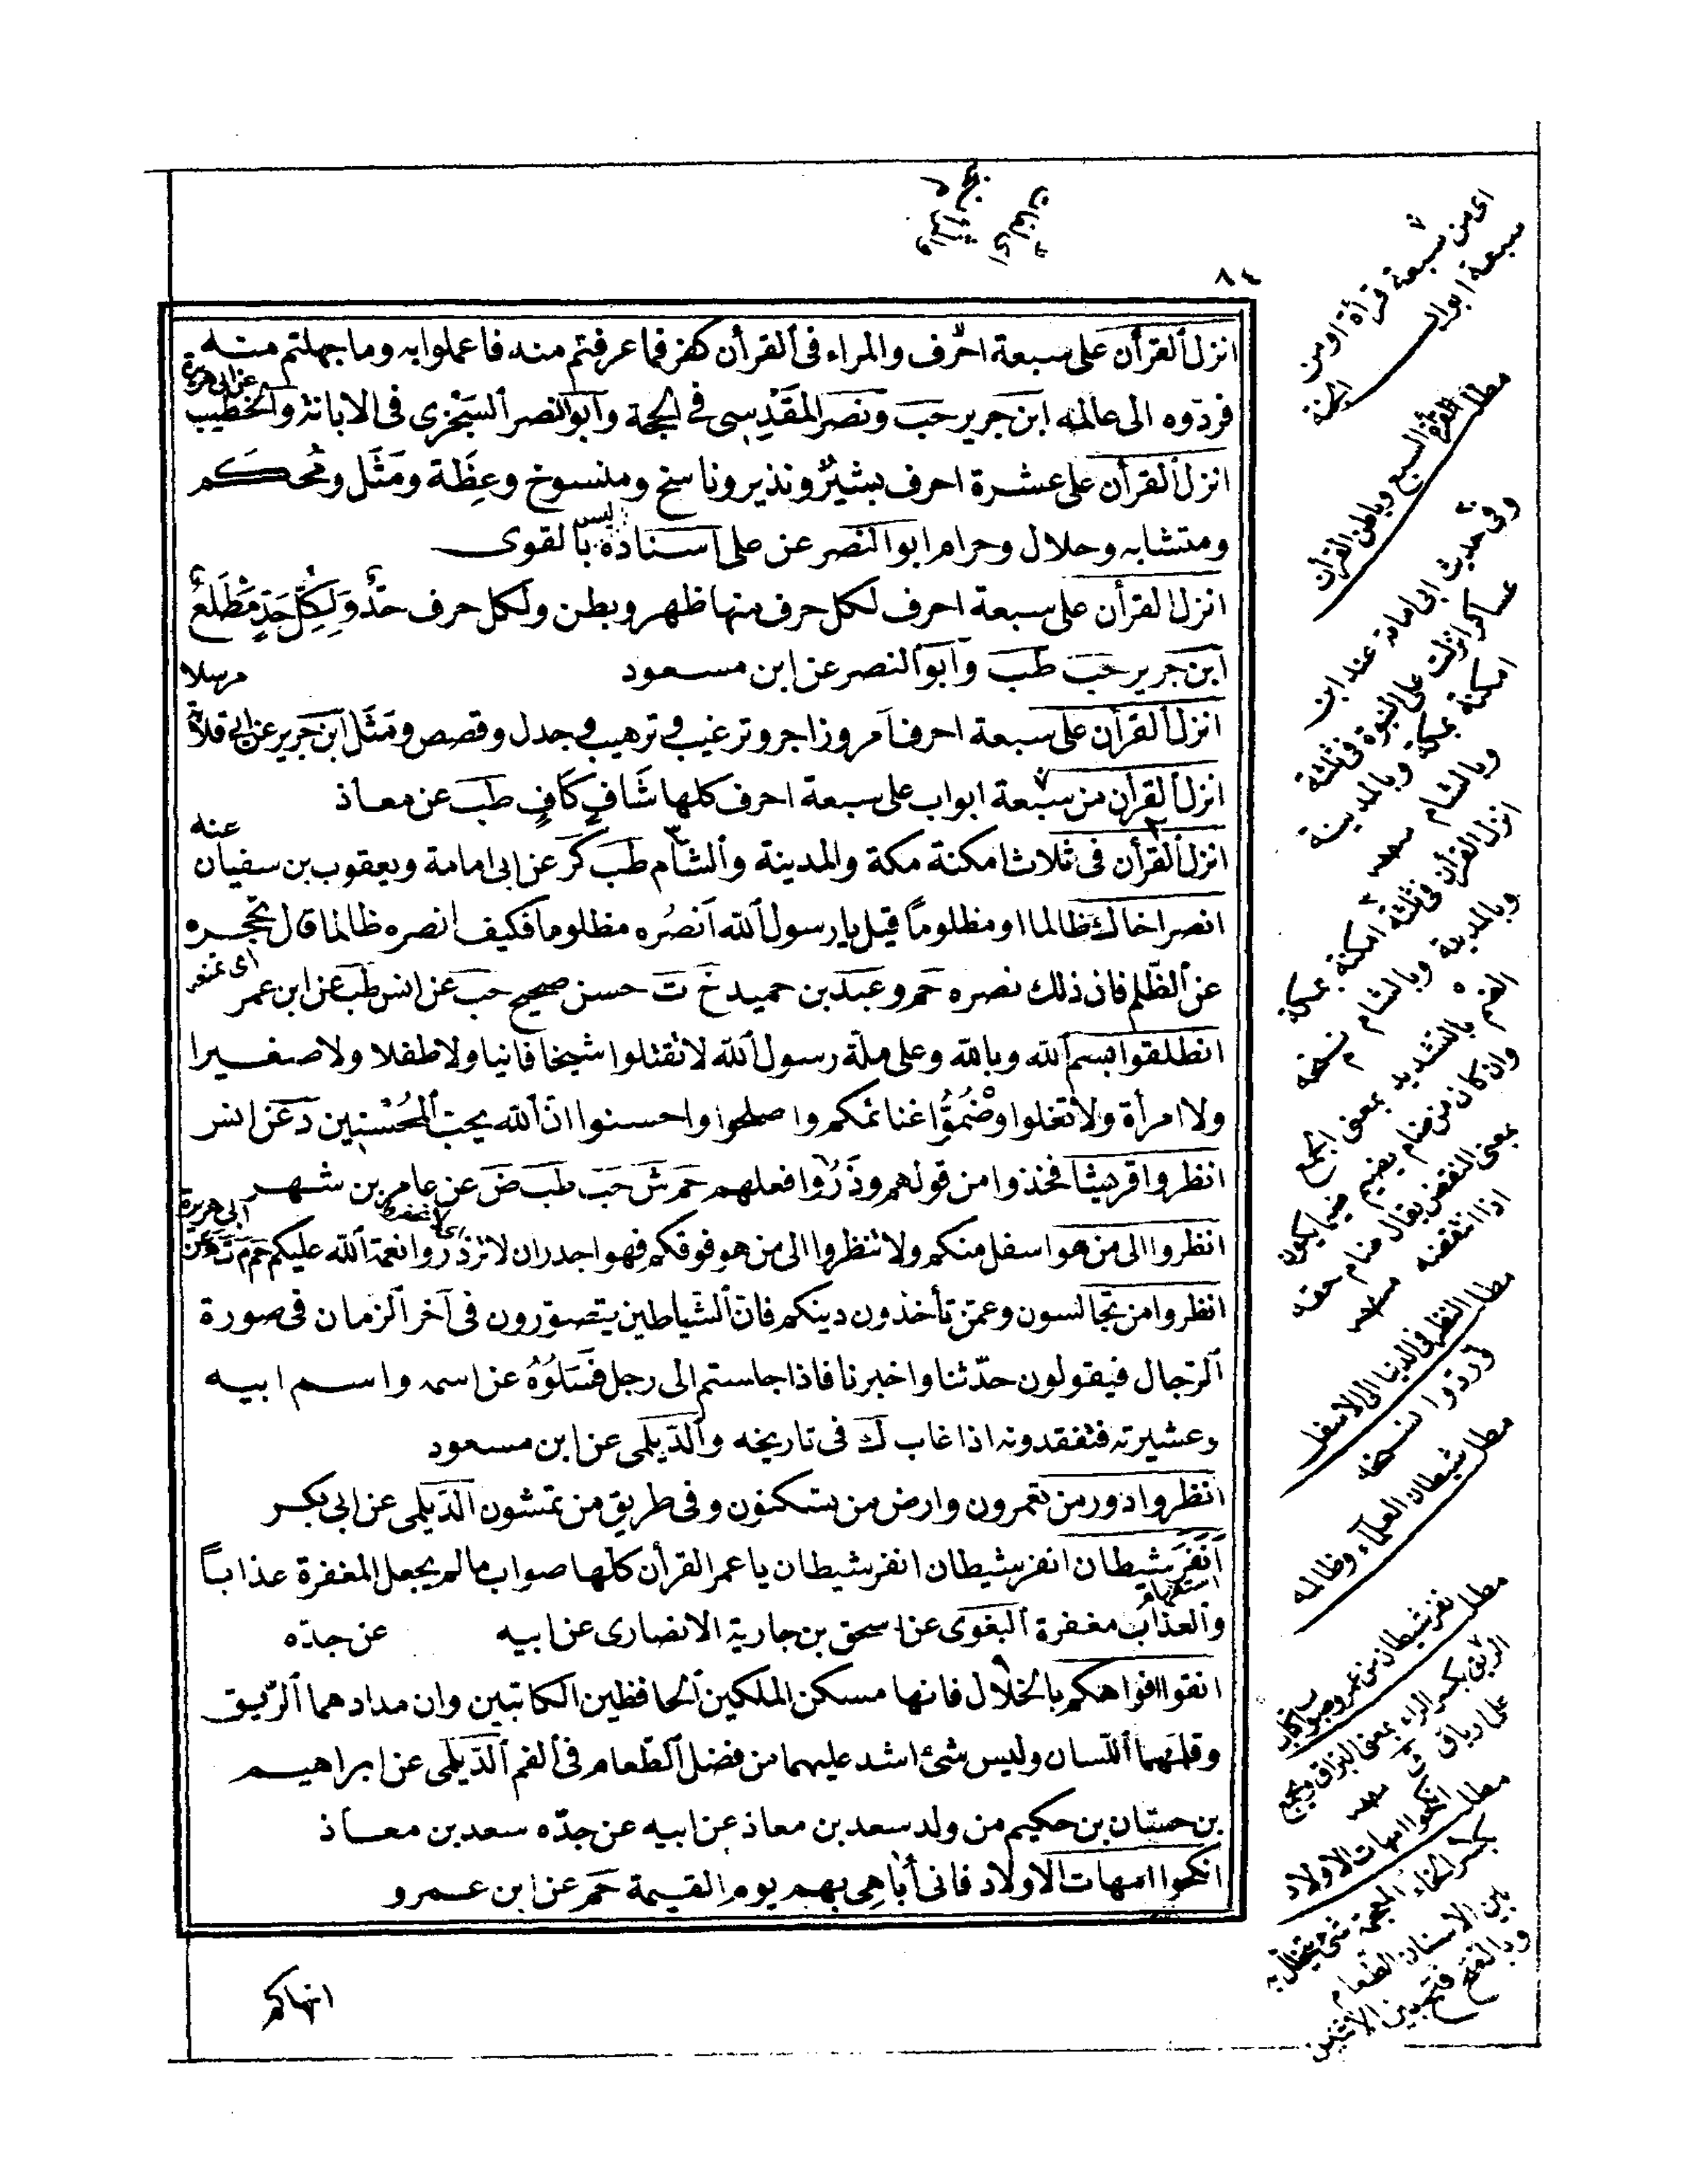 ٨٤
انزل القرأن على سبعة احرف والمراء فى القرأن كفر فما عرفتم منه فاعملوا به وما جهلتم منه
فردّوه الى عالمه ابن جرير حب ونصر المقدسى فى الحجة وابو النصر السجزى فى الابانة والخطيب عن ابى هريرة
انزل القرأن على عشرة احرف بشير ونذير وناسخ ومنسوخ وعِظَة ومَثَل ومُحكم
ومتشابه وحلال وحرام ابو النصر عن على اسناده ليس بالقوى
انزل القرأن على سبعة احرف لكل حرف منها ظهر وبطن ولكل حرف حدٌّ وَلِكُلِّ حَدٍّ مَطْلَعٌ
ابن جرير حب طب وابو النصر عن ابن مسعود
انزل القرأن على سبعة احرف أمر وزاجر وترغيب وترهيب وجدل وقصص ومَثَل ابن جرير عن ابى قلابة مرسلا
انزل القرأن من سبعة ابواب على سبعة احرف كلها شَافٍ كَافٍ طب عن معاذ
انزل القرأن فى ثلاث امكنة مكة والمدينة والشأم طب كر عن ابى امامة ويعقوب بن سفيان عنه
انصر اخاك ظالما او مظلوماً قيل يا رسول الله أنصُره مظلوما فكيف انصره ظالما قال تحجره
عن الظّلم فان ذلك نصره حم وعبد بن حميد خ ت حسن صحيح حب عن انس طب عن ابن عمر
اى تمنعه
انطلقوا بسم الله وبالله وعلى ملة رسول الله لا تقتلوا شيخا فانيا ولا طفلا ولا صغيرا
ولا امرأة ولا تغلوا وضُمُّوا غنائمكم واصلحوا واحسنوا انّ الله يحب المُحْسنِين د عن انس
انظروا قريشا فخذوا من قولهم وذَرُوا فعلهم حم ش حب طب ض عن عامر بن شهر
انظروا الى من هو اسفل منكم ولا تنظروا الى من هو فوقكم فهو اجدر ان لا تزذروا نعمة الله عليكم حم م ت ه عن ابى هريرة
انظروا من تجالسون وعمّن تأخذون دينكم فانّ الشّياطين يتصوّرون فى آخر الزمان فى صورة
الرّجال فيقولون حدّثنا واخبرنا فاذا جلستم الى رجل فَسَلُوهُ عن اسمه واسم ابيه
وعشيرته فتفقدونه اذا غاب ك فى تاريخه والدّيلمى عن ابن مسعود
انظروا دور من تعمرون وارض من تسكنون وفى طريق من تمشون الدّيلمى عن ابى بكر
أنَفَرَ شيطان انفر شيطان انفر شيطان يا عمر القرأن كلها صواب ما لم يجعل المغفرة عذاباً
استفهام
والعذاب مغفرة البغوى عن اسحق بن جارية الانصارى عن ابيه عن جدّه
انقوا افواهكم بالخلال فانها مسكن الملكين الحافظين الكاتبين وان مدادهما الرّيق
وقلمهما اللّسان وليس شئ اشد عليهما من فضل الطّعام فى الفم الدّيلمى عن ابراهيم
بن حسّان بن حكيم من ولد سعد بن معاذ عن ابيه عن جدّه سعد بن معاذ
انكحوا امهات الاولاد فانى أُباهِى بهم يوم القيمة حم عن ابن عمرو
اى من سبعة قرأة او من
سبعة ابواب الجنة
مطلب القرأة السبع وباطن القرأن
وفى حديث ابى امامة عند ابن
عساكر انزلت على النبوة فى ثلثة
امكنة بمكة وبالمدينة
وبالشام
انزل القرأن فى ثلثة امكنة بمكة
وبالمدينة وبالشام نسخه
الضم بالتشديد بمعنى الجمع
وان كان من ضام يضيم ضيما يكون
بمعنى النقص يقال ضام حقه
اذا انتقصه
مطلب النظر فى الدنيا الى الاسفل
مطلب شيطان العلماء وظالمه
مطلب نفر شيطان من عمر
الريق بكسر الراء بمعنى البزاق ويجمع
على ارياق
مطلب انكحوا امهات الاولاد
بكسر الخاء المعجمة شئ يتخلل به
بين الاسنان الطعام
وبالفتح فتح بين الاثنين
انهاكم